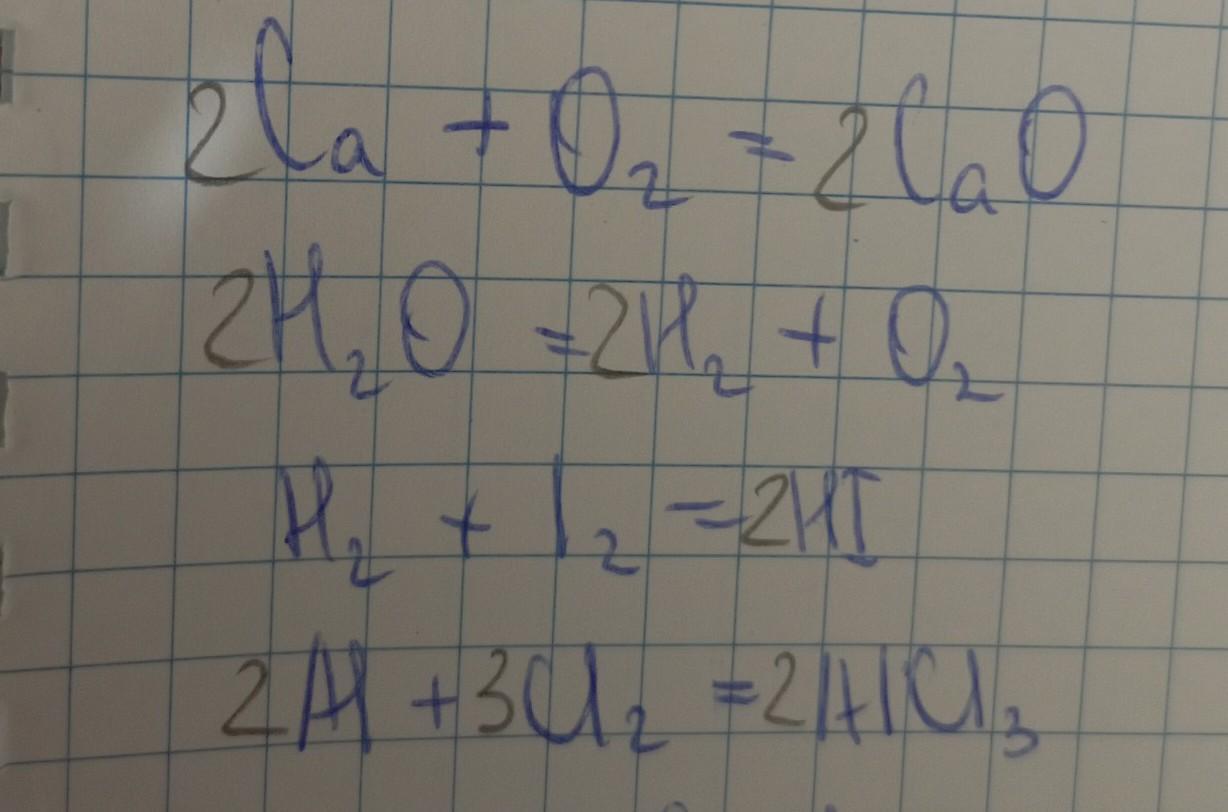 2Ca + O₂ = 2CaO
2H₂O = 2H₂ + O₂
H₂ + I₂ = 2HI
2Al + 3Cl₂ = 2AlCl₃